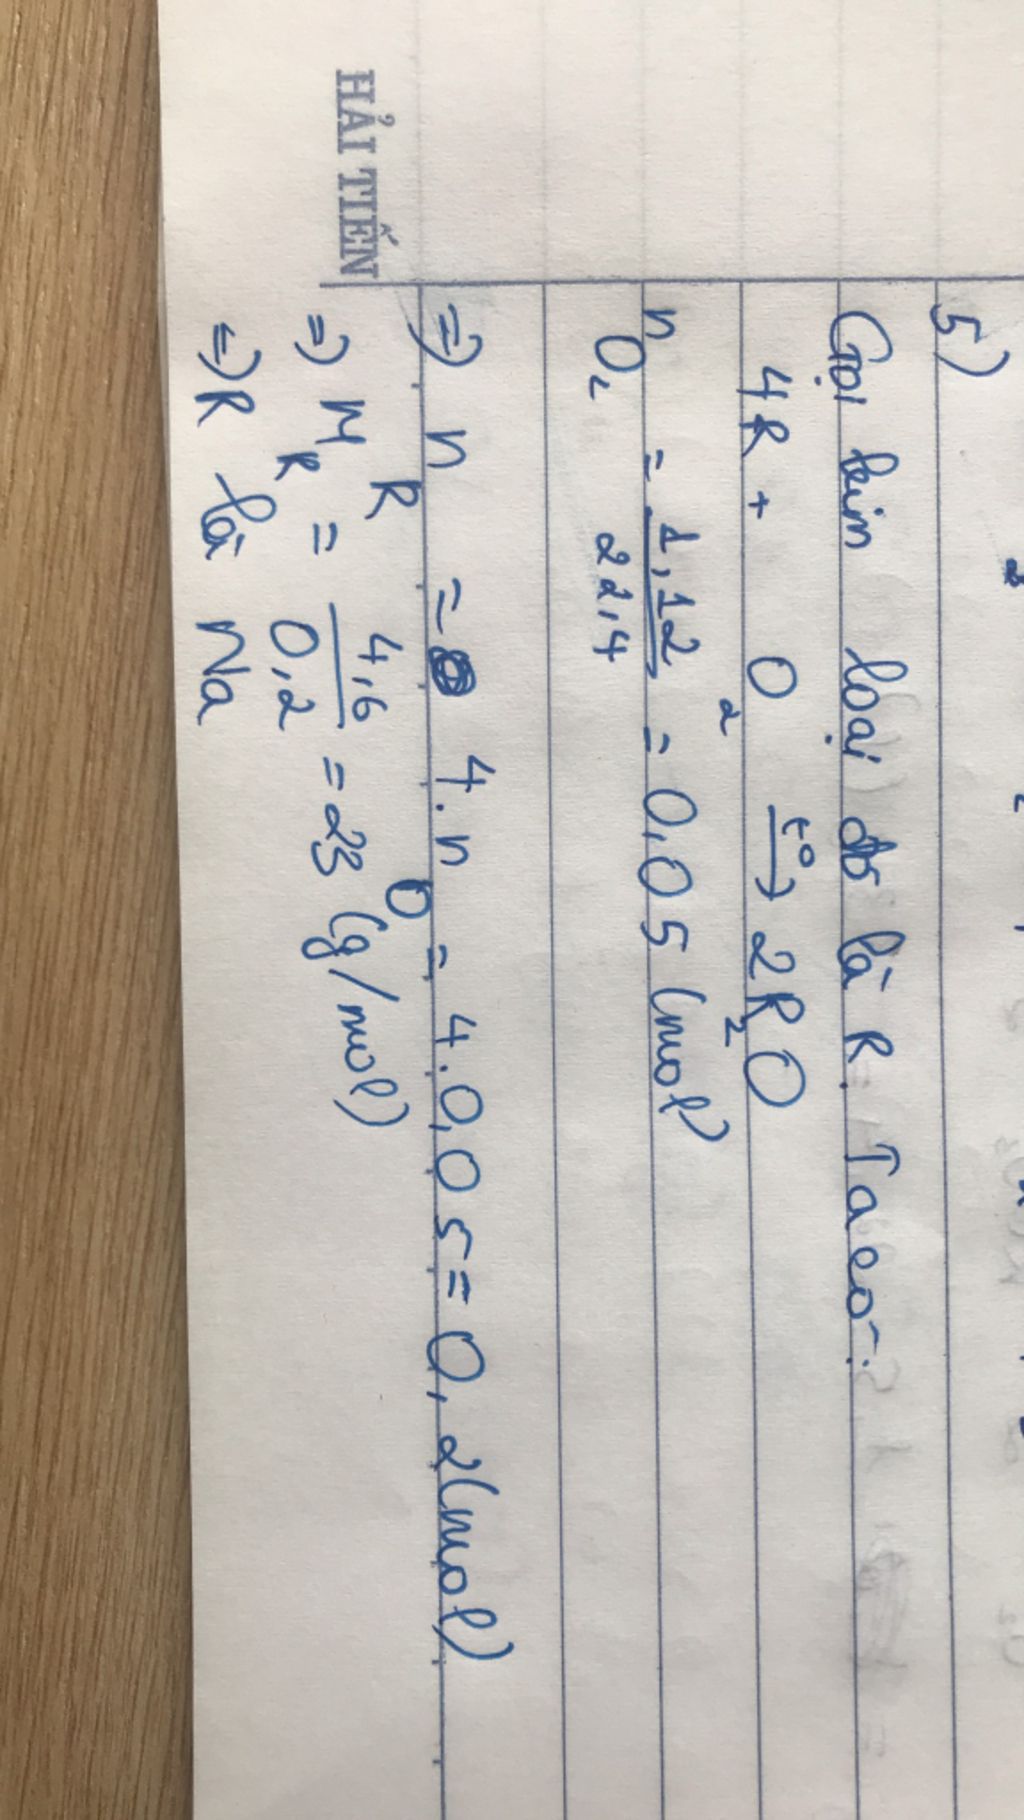 5)
Gọi kim loại đó là R. Ta có:
4R + O2 t° → 2R2O
nO2 = 1,12 / 22,4 = 0,05 (mol)
=> nR = 4.nO = 4.0,05 = 0,2 (mol)
=> MR = 4,6 / 0,2 = 23 (g/mol)
=> R là Na
HẢI TIẾN